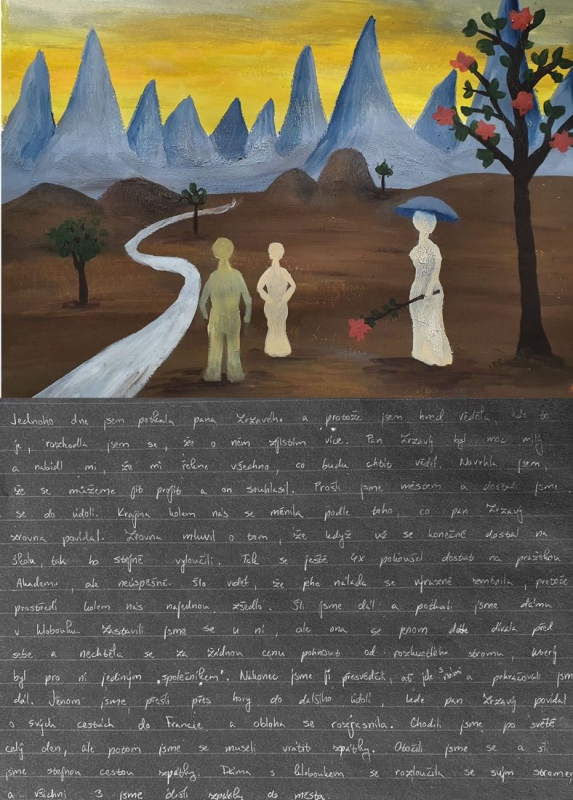 Jednoho dne jsem potkala pana Zrzavého a protože jsem hned věděla, kdo to
je, rozhodla jsem se, že o něm zjistím více. Pan Zrzavý byl moc milý
a nabídl mi, že mi řekne všechno, co budu chtít vědět. Navrhla jsem,
že se můžeme jít projít a on souhlasil. Prošli jsme městem a dostali jsme
se do údolí. Krajina kolem nás se měnila podle toho, co pan Zrzavý
zrovna povídal. Zrovna mluvil o tom, že když už se konečně dostal na
školu tak ho stejně vyloučili. Tak se ještě 4x pokoušel dostat na pražskou
Akademii, ale neúspěšně. Šlo vidět, že jeho nálada se výrazně změnila, protože
prostředí kolem nás najednou zšedlo. Šli jsme dál a potkali jsme dámu
v klobouku. Zastavili jsme se u ní, ale ona se jenom dívala před
sebe a nechtěla se za žádnou cenu pohnout od rozkvetlého stromu který
byl pro ní jediným „společníkem". Nakonec jsme jí přesvědčili, ať jde s námi a pokračovali jsme
dál. Jenom jsme přešli přes hory do dalšího údolí, kde pan Zrzavý povídal
o svých cestách do Francie a obloha se rozjasnila. Chodili jsme po světě
celý den, ale potom jsme se museli vrátit zpátky. Otočili jsme se a šli
jsme stejnou cestou zpátky. Dáma s kloboukem se rozloučila se svým stromem
a všichni 3 jsme došli zpátky do města.